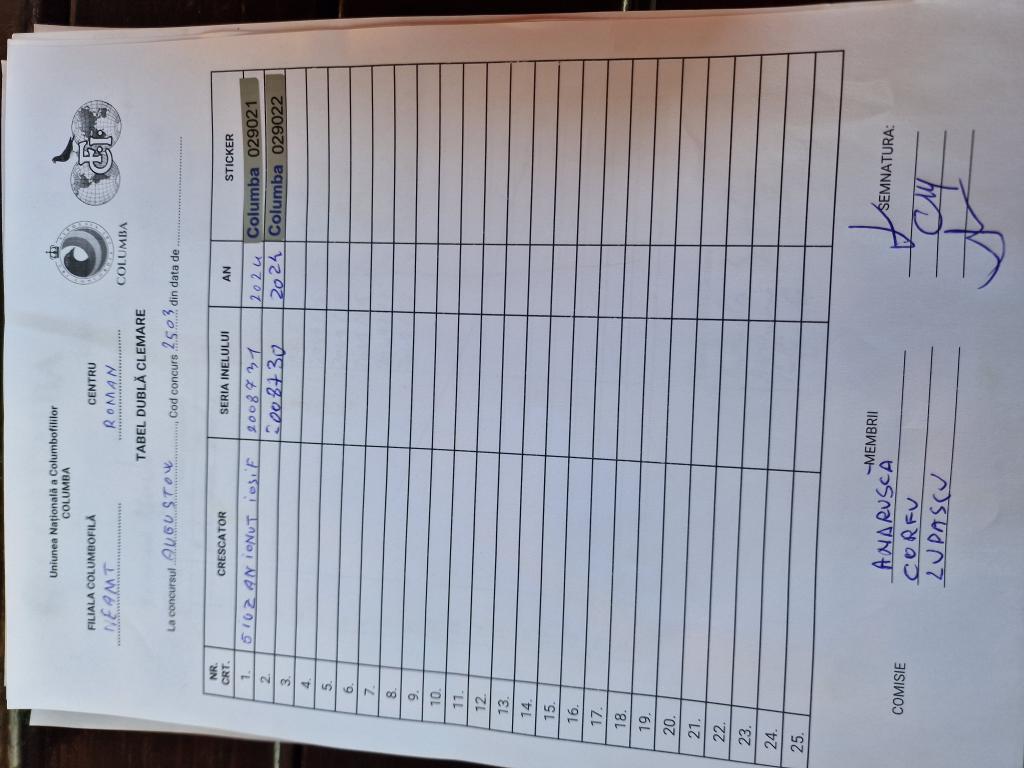 Uniunea Națională a Columbofililor
COLUMBA
COLUMBA
FILIALA COLUMBOFILĂ CENTRU
NEAMT ROMAN
TABEL DUBLĂ CLEMARE
La concursul AUGUSTOW, Cod concurs 2503 din data de
NR. CRT. CRESCATOR SERIA INELULUI AN STICKER
1. IONUT IOSIF 2008731 2024 Columba 029021
2. 2008730 2024 Columba 029022
3.
4.
5.
6.
7.
8.
9.
10.
11.
12.
13.
14.
15.
16.
17.
18.
19.
20.
21.
22.
23.
24.
25.
COMISIE -MEMBRII SEMNATURA:
ANARUSCA
CORFU
LUPASCU